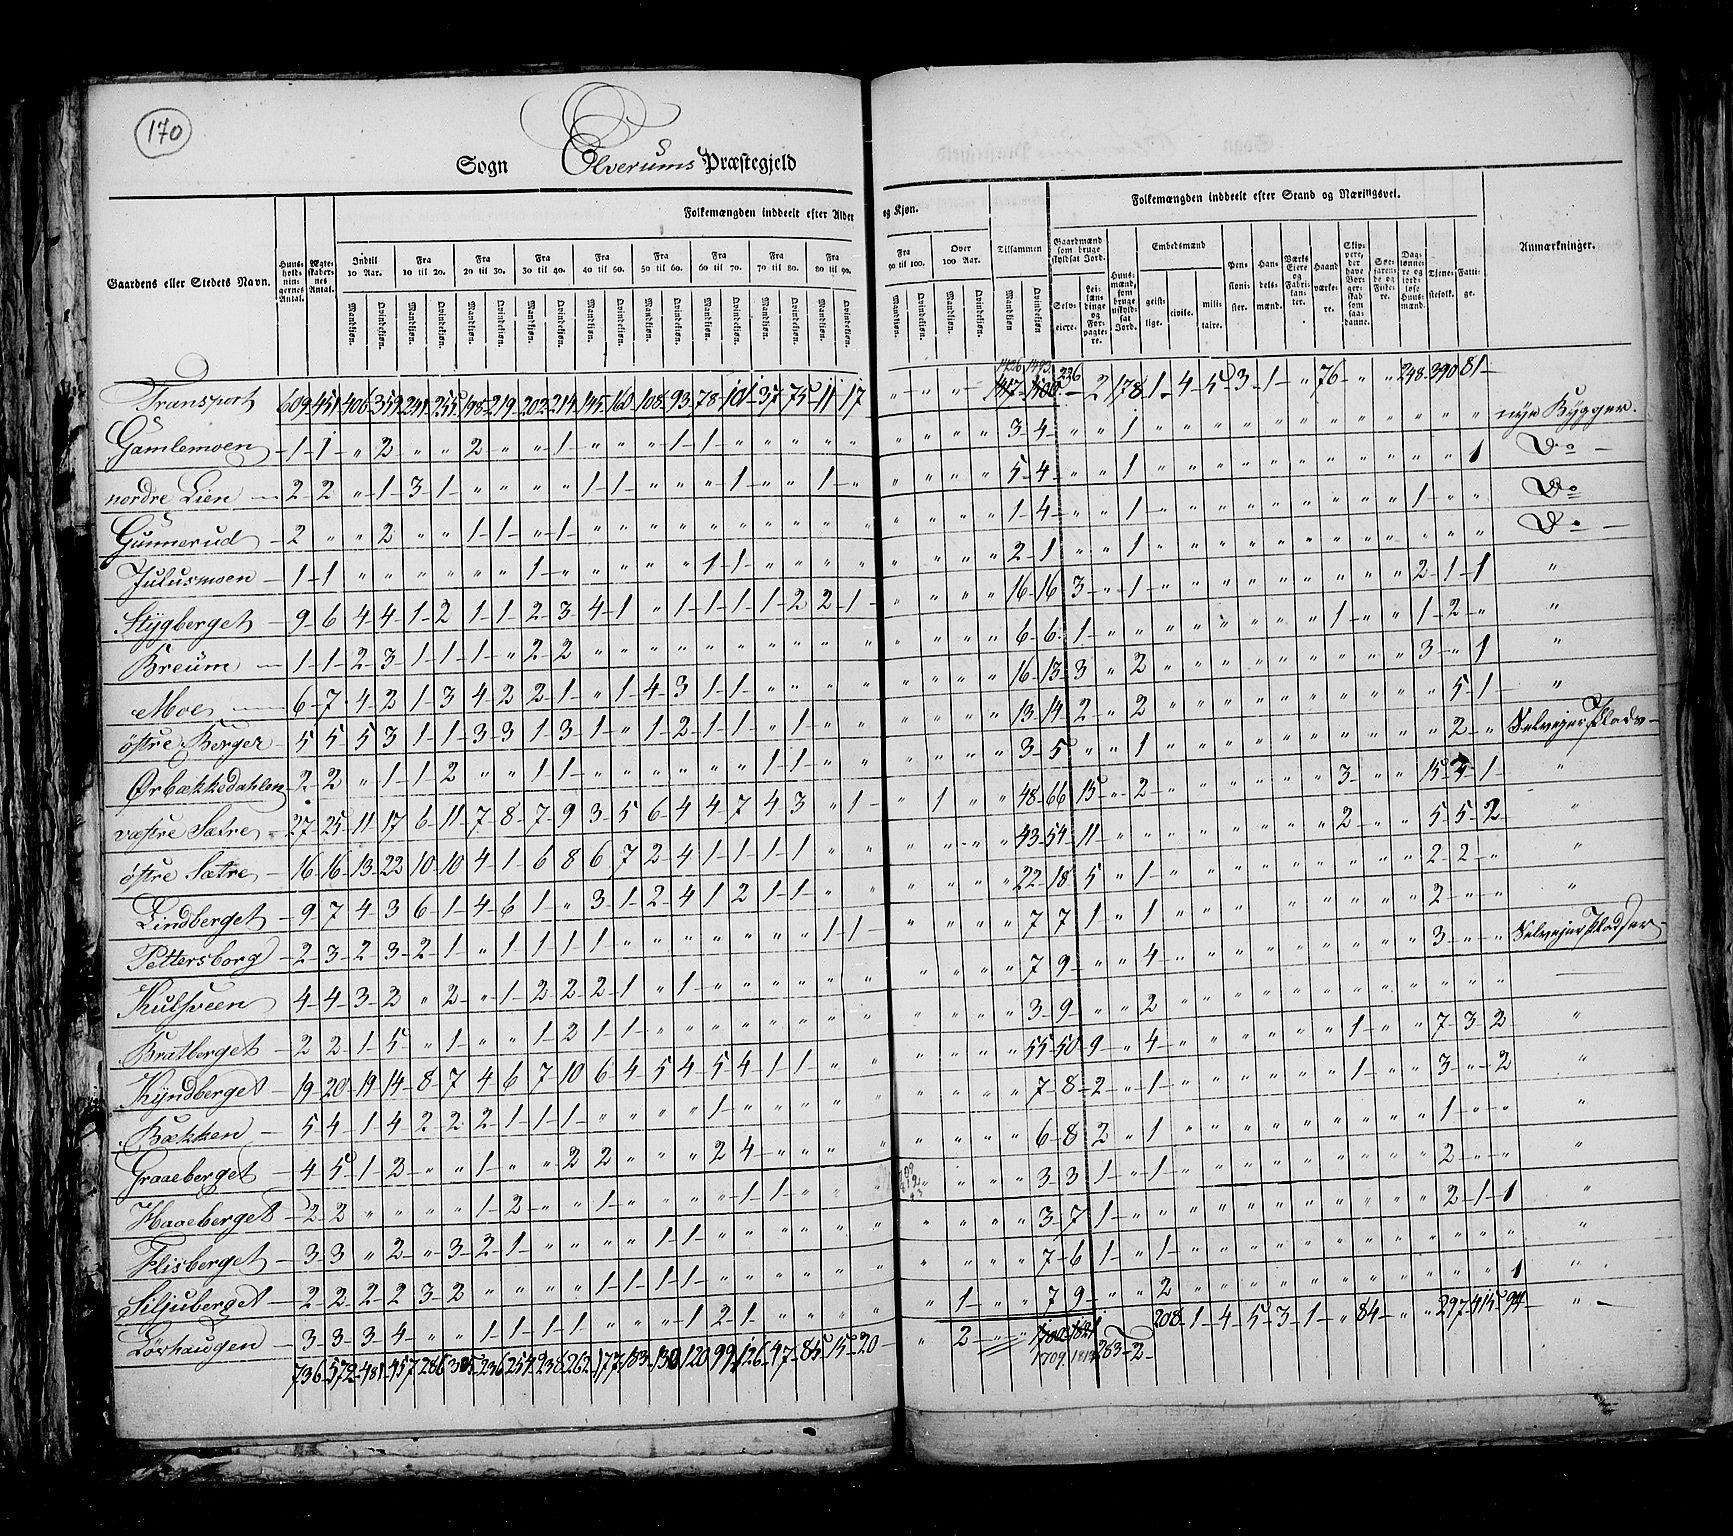 170
Sogn Elverums Præstegjeld
Folkemængden inddeelt efter Alder og Kjøn.
Folkemængden inddeelt efter Stand og Næringsvei.
Gaardens eller Stedets Navn.
Huusholdningernes Antal.
Ægteskabernes Antal.
Indtil 10 Aar.
Fra 10 til 20.
Fra 20 til 30.
Fra 30 til 40.
Fra 40 til 50.
Fra 50 til 60.
Fra 60 til 70.
Fra 70 til 80.
Fra 80 til 90.
Fra 90 til 100.
Over 100 Aar.
Tilsammen
Mandkjøn. Qvindekjøn.
Gaardmænd som bruge skyldsat Jord.
Selveiere.
Leilændinge og Forpagtere.
Huusmænd, som bruge uskyldsat Jord.
Embedsmænd
geistlige. civile. militaire.
Pensionister.
Handelsmænd.
Værks Eiere og Fabrikanter.
Haandværkere.
Skippere, der have Borgerskab som saadanne.
Søefarende og Fiskere.
Daglønnere og jordløse Huusmænd.
Tjenestefolk.
Fattige.
Anmærkninger.
1426 1493
Transport 609 451 406 359 241 255 198 219 202 214 145 160 108 93 78 101 37 75 11 17 " " " 1417 1500 236 2 178 1 4 5 3 1 " 76 " " 248 390 81
Gamlemoen 1 1 " 2 " " 2 " " 1 " " " 1 1 " " " " " " " " " 3 4 " " 1 " " " " " " " " " " " " nye Bygger.
nordre Lien 2 2 " 1 3 1 " " " " 1 1 " " " 1 " " 1 " " " " " 5 4 " " 1 " " " " " " " " " " " 1 Do
Gunnerud 2 " " 2 " " 1 1 " 1 " " " " " " " " " " " " " " 1 4 " " 1 " " " " " " " " " 1 " " Do
Julusmoen 1 1 " " " " " " 1 " " " " " 1 1 " " " " " " " " 2 1 " " 1 " " " " " " " " " " " " Do
Stygberget 9 6 4 4 1 2 1 1 2 3 4 1 " 1 1 1 1 2 2 1 " " " " 16 16 3 " 1 " " " " " " " " " 2 1 1 "
Breum 1 1 2 3 1 1 1 " 2 2 " " " " " " " " " " " " " " 6 6 1 " " " " " " " " 1 " " 1 2 " "
Moe 6 7 4 2 1 3 4 2 2 1 " 1 4 3 1 1 " " " " " " " " 16 13 3 " 2 " " " " " " " " " 3 " 1 "
östre Berger 5 5 5 3 1 1 3 3 1 3 1 " 1 2 1 1 " 1 " " " " " " 13 14 2 " 2 " " " " " " " " " " 5 1 "
Ørbækkedahlen 2 2 " 1 1 2 " " 1 1 " " " " " " 1 1 " " " " " " 3 5 " " 1 " " " " " " " " " " 2 " Selvejer Pladv
væstre Sætre 27 25 11 17 6 11 7 8 7 9 3 5 6 4 4 7 4 3 " 1 " 1 " " 48 66 15 " 2 " " " " " " 3 " " 15 1 "
östre Sætre 16 16 13 22 10 10 4 1 6 8 6 7 2 4 1 1 1 1 " " " " " " 43 54 11 " " " " " " " " 2 " " 5 5 2 "
Lindberget 9 7 4 3 6 1 4 6 1 " 3 1 2 4 1 2 1 1 " " " " " " 22 18 5 " 1 " " " " " " " " " 2 2 " "
Pettersborg 2 3 2 3 2 1 " 1 1 1 1 " " " " " " " 1 1 " " " " 7 7 1 " 1 " " " " " " " " " 2 " " "
Kulsveen 4 4 3 2 " 2 " 1 2 2 2 1 " 1 " " " " " " " " " " 7 9 " " 4 " " " " " " " " " 3 " " Selvejer Pladser
Bratberget 2 2 1 5 " 1 " " 1 2 1 1 " " " " " " " " " " " " 3 9 " " 2 " " " " " " " " " " " "
Kyndberget 19 20 19 14 8 7 4 6 7 10 6 4 5 4 5 4 1 1 " " " " " " 55 50 9 " 4 " " " " " " 1 " " 7 3 2 "
Bækken 5 4 1 4 2 2 2 1 1 1 " " " " 1 " " " " " " " " " 7 8 2 " 1 " " " " " " 1 " " 3 " 2 "
Graaeberget 4 5 1 2 " " 1 " " 2 2 " " " 2 4 " " " " " " " " 6 8 2 " 1 " " " " " " " " " 1 " " "
Haaeberget 2 2 " " " " 1 2 " " 1 " " " " 1 1 " " " " " " " 3 3 1 " 1 " " " " " " " " " 2 " " "
Flisberget 3 3 " 2 " 3 2 1 " " " " 1 1 " " " " " " " " " " 3 7 1 " " " " " " " " " " " 2 1 1 "
Siljuberget 2 2 2 2 3 2 " " " " 1 1 1 1 " " " " " " " " " " 7 6 1 " 1 " " " " " " " " " " " " "
Lörhaugen 3 3 3 4 " " 1 1 1 1 " " " 1 2 1 " " " " " 1 " " 7 9 " " 2 " " " " " " " " " " " 1 "
736 572 481 457 286 305 236 254 238 262 177 183 130 120 99 126 47 85 15 20 " 2 " " 1700 1821 283 2 208 1 4 5 3 1 " 84 " " 297 415 94
1709 1813